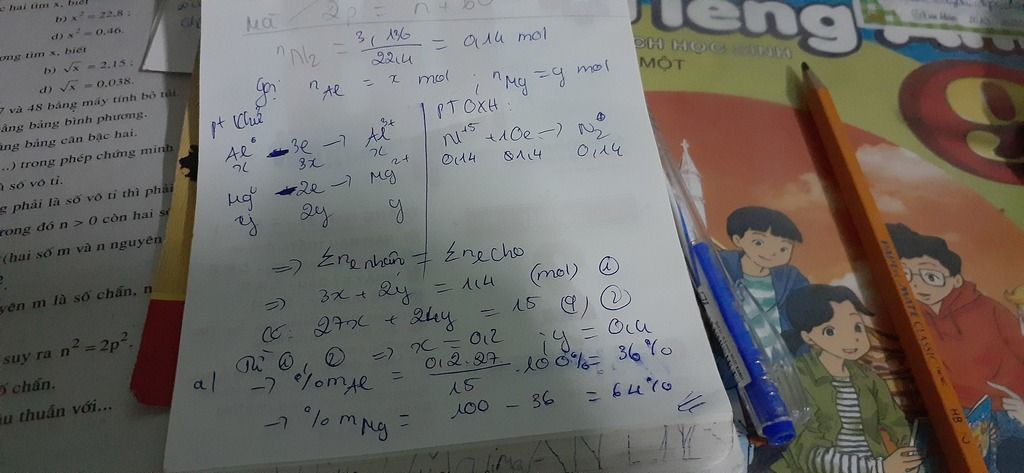 hai tìm x, biết
b) x² = 22,8 ;
d) x² = 0,46.
ong tìm x, biết
b) √x = 2,15 ;
d) √x = 0,038.
7 và 48 bằng máy tính bỏ túi.
ằng bảng bình phương.
ằng bảng căn bậc hai.
...) trong phép chứng minh
à số vô tỉ.
g phải là số vô tỉ thì phải
rong đó n > 0 còn hai số
(hai số m và n nguyên
yên m là số chẵn, n
suy ra n² = 2p².
ố chẵn.
âu thuẫn với...
Mà 2p = n +
nN2 = 3,136/22,4 = 0,14 mol
Gọi nAl = x mol ; nMg = y mol
pt khử
Al⁰ - 3e → Al³⁺
x 3x x
Mg⁰ - 2e → Mg²⁺
y 2y y
PT OXH :
N⁺⁵ + 10e → N2⁰
0,14 1,4 0,14
=> Σne nhận = Σne cho
=> 3x + 2y = 1,4 (mol) ①
Có: 27x + 24y = 15 (g) ②
Từ ①, ② => x = 0,2 ; y = 0,4
a) → %mAl = 0,2.27/15 .100% = 36%
→ %mMg = 100 - 36 = 64%
Tiếng
CH HỌC SINH
MỘT
9
MATE CLASSIC
HB